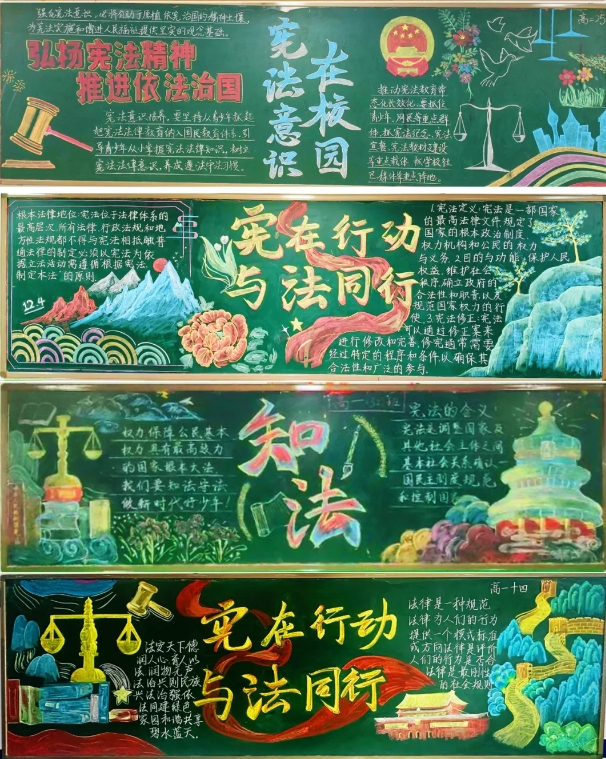 强化宪法意识,必将有助于厚植依宪治国的精神土壤,
为宪法实施和增进人民福祉提供坚实的观念基础。
高二25
弘扬宪法精神
推进依法治国
宪法意识
在校园
宪法意识培养,要坚持从青少年抓起
把宪法法律教育纳入国民教育体系,引
导青少年从小掌握宪法法律知识、树立
宪法法律意识、养成遵法守法习惯。
推动宪法教育常
态化长效化,要抓住
青少年、网民等重点群
体,抓宪法纪念、宪法
宣誓、宪法教材建设
等重点载体,抓学校社
区媒体等重点阵地。
根本法律地位:宪法位于法律体系的
最高层次,所有法律、行政法规和地
方性法规都不得与宪法相抵触普
通法律的制定必须以宪法为依
据立法活动需遵循根据宪法,
制定本法"的原则
12.4
宪在行动
与法同行
1.宪法定义:宪法是一部国家
的最高法律文件,规定了
国家的根本政治制度、
权力机构和公民的权力
与义务.2目的与功能:保护人民
权益,维护社会
秩序,确立政府的
合法性和职责,以及
规范国家权力的行
使.3.宪法修正:宪法
可以通过修正案来
进行修改和完善,修宪通常需要
经过特定的程序和条件,以确保其
合法性和广泛的参与.
知法
权力保障公民基本
权力具有最高效力
的国家根本大法
我们要知法守法
做新时代好少年!
宪法的含义
宪法是调整国家及
其他社会主体之间
基本社会关系确认
国民主制度规范
和控制国家
宪在行动
与法同行
高一十四
法安天下德
润人心育人以
法润物无声
法治兴则民族
兴法治强依
法同建绿色
家园和谐共享
碧水蓝天。
法律是一种规范
法律为人们的行为
提供一个模式标准
或方向法律是评价
人们的行为是否合
法律是最刚性
的社会规则